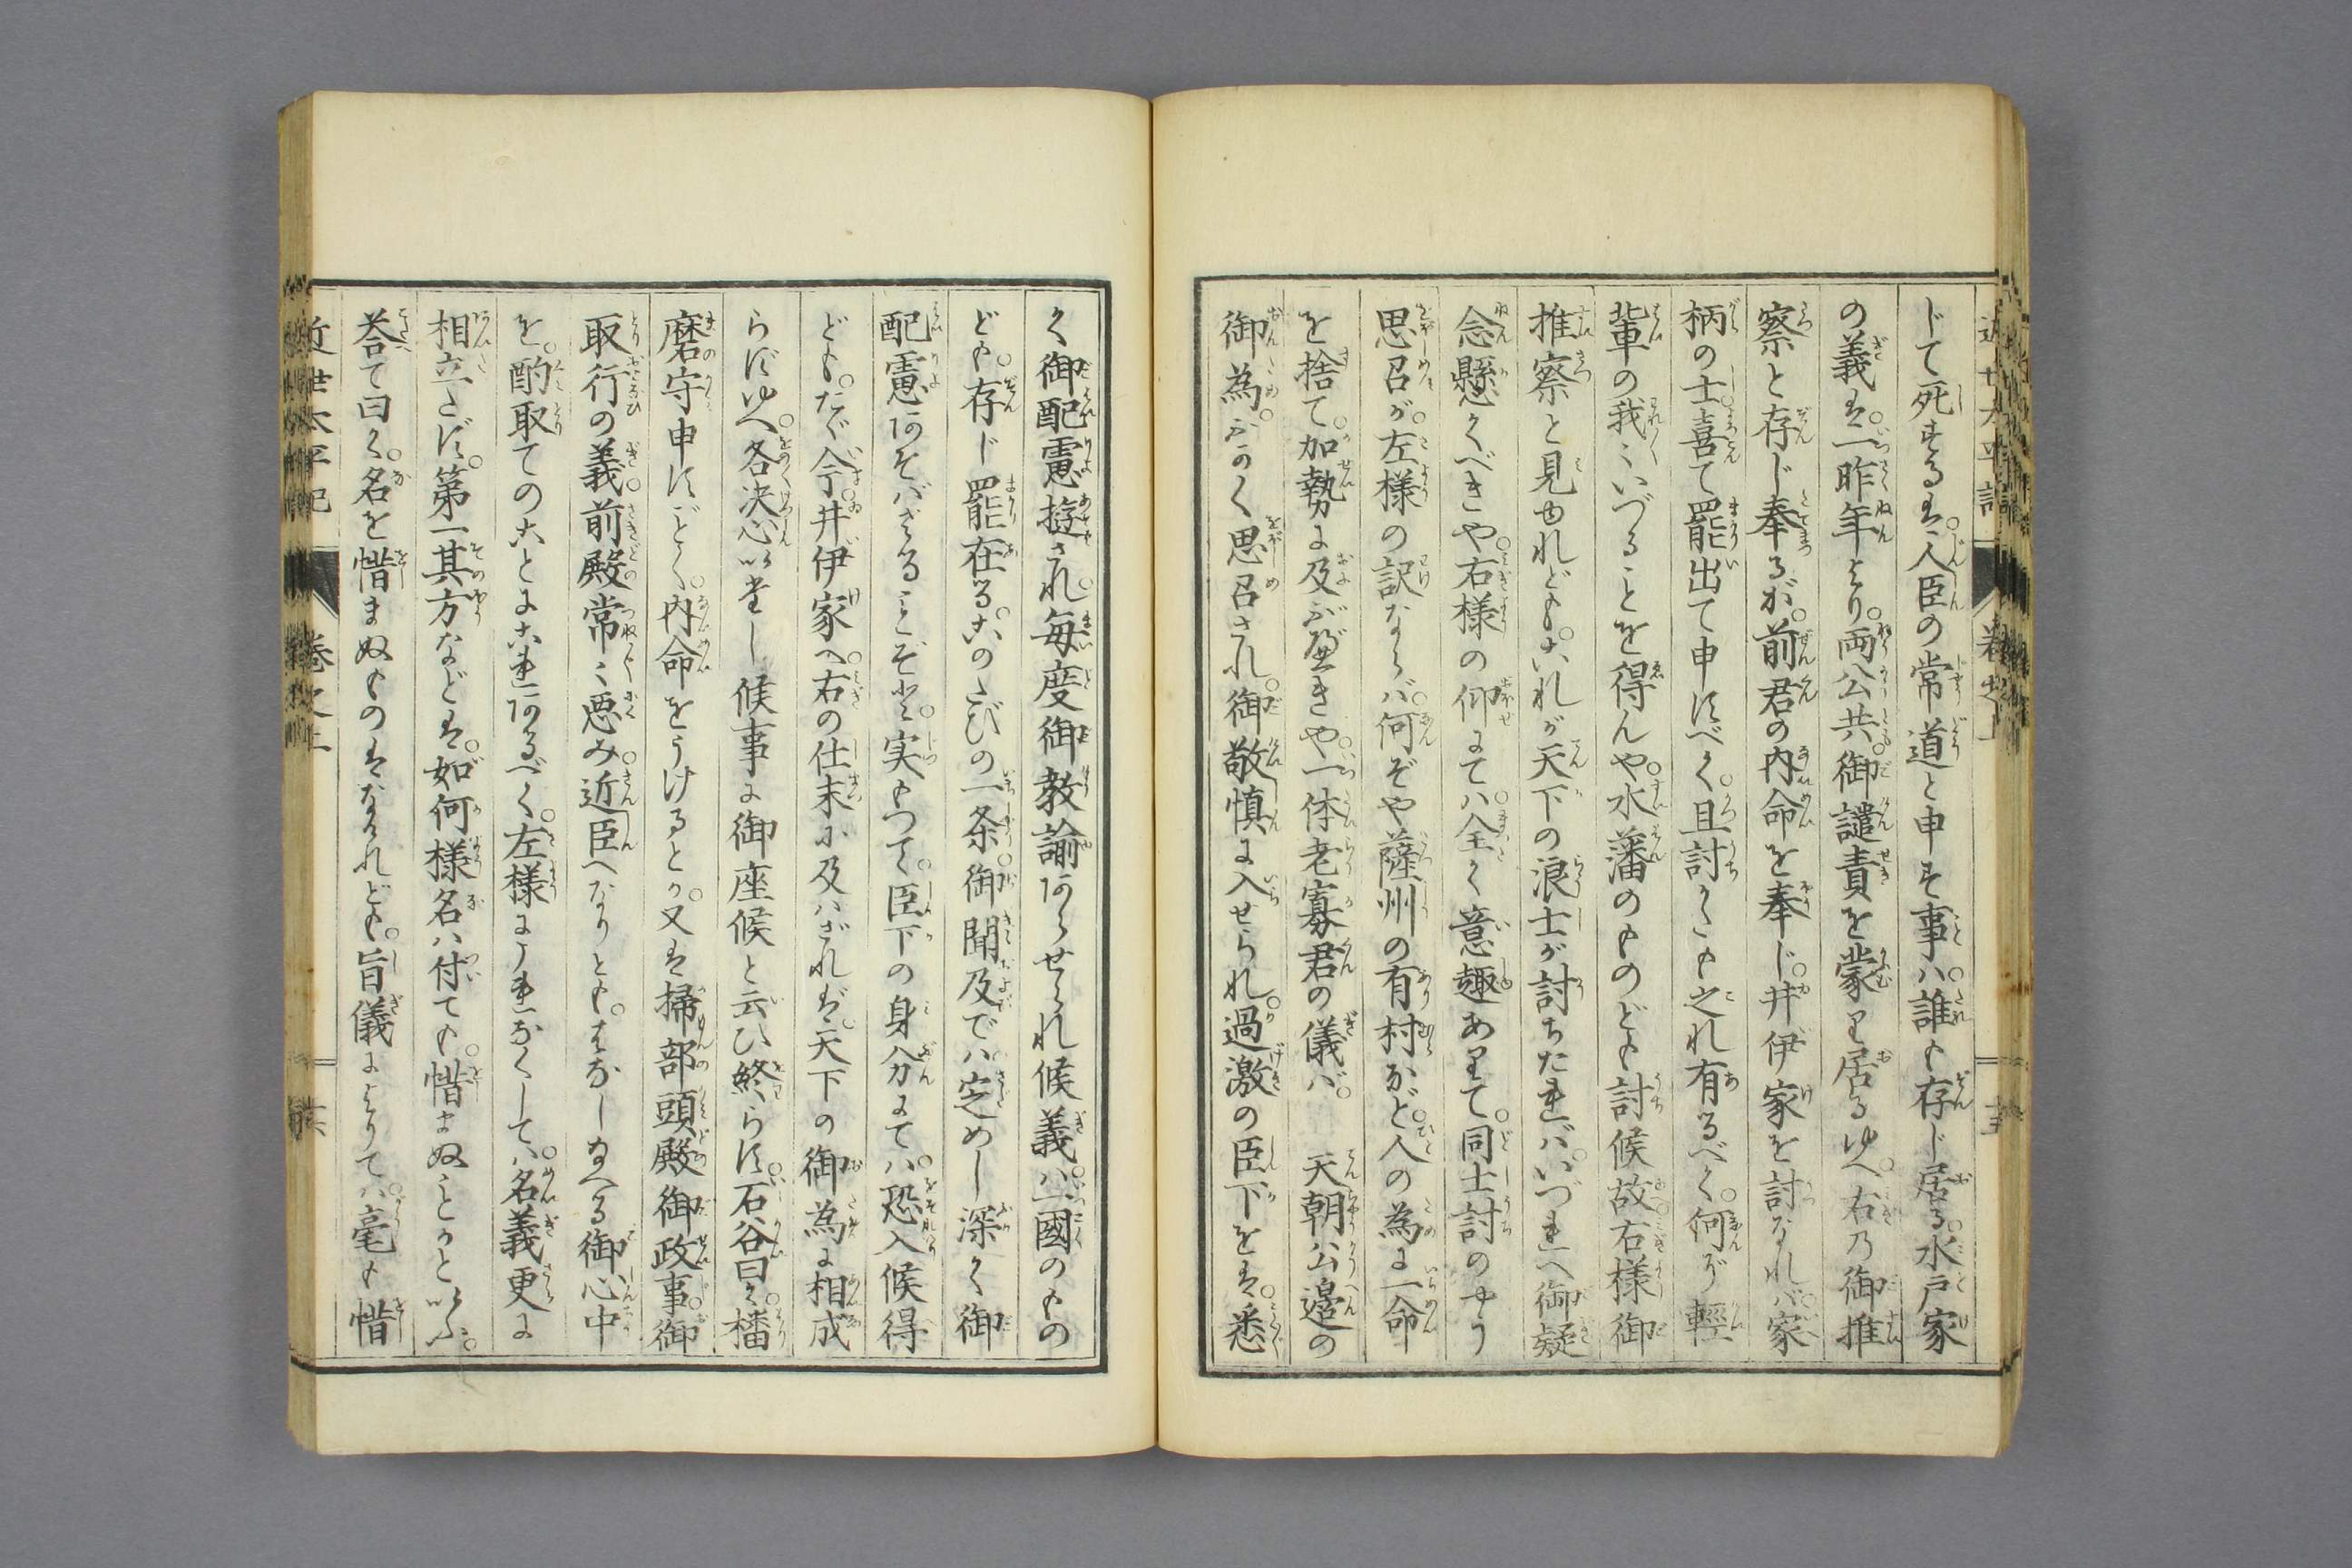 じて死するは人臣の常道と申す事ハ誰も存じ居る水戸家
の義は一昨年より両公共御譴責を蒙り居るゆへ右乃御推
察と存じ奉るが前君の内命を奉じ井伊家を討なれバ家
柄の士喜て罷出て申すべく且討くも之れ有るべく何ぞ輕
輩の我々いづることを得んや水藩のものども討候故右様御
推察と見ゆれどもこれが天下の浪士が討ちたれバいづれへ御疑
念懸くべきや右様の仰よてハ全く意趣ありて同士討のやう
思召が左様の訳ならバ何ぞや薩州の有村など人の為よ一命
を捨て加勢よ及ぶべきや一体老寡君の儀ハ 天朝公邊の
御為ふかく思召され御敬慎よ入せられ過激の臣下をは悉
く御配慮遊され毎度御教諭あらせられ候義ハ一國のもの
ども存じ罷在るこのたびの一条御聞及でハ定めし深く御
配慮あそバさるることぞと実もつて臣下の身分よてハ恐入候得
どもたゞ今井伊家へ右の仕末ふ及ハざれバ天下の御為よ相成
らずゆへ各決心いたし候事よ御座候と云ひ終らず石谷曰く播
磨守申すごとく内命をうけるとか又は掃部頭殿御政事御
取行の義前殿常々悪み近臣へなりともはなし給へる御心中
を酌取てのことよこれあるべく左様よこれなくしてハ名義更よ
相立たず第一其方などは如何様名ハ付ても惜まぬことかといふ
答て曰く名を惜まぬものはなけれども旨儀よよりてハ毫も惜
近世太平記 巻之上